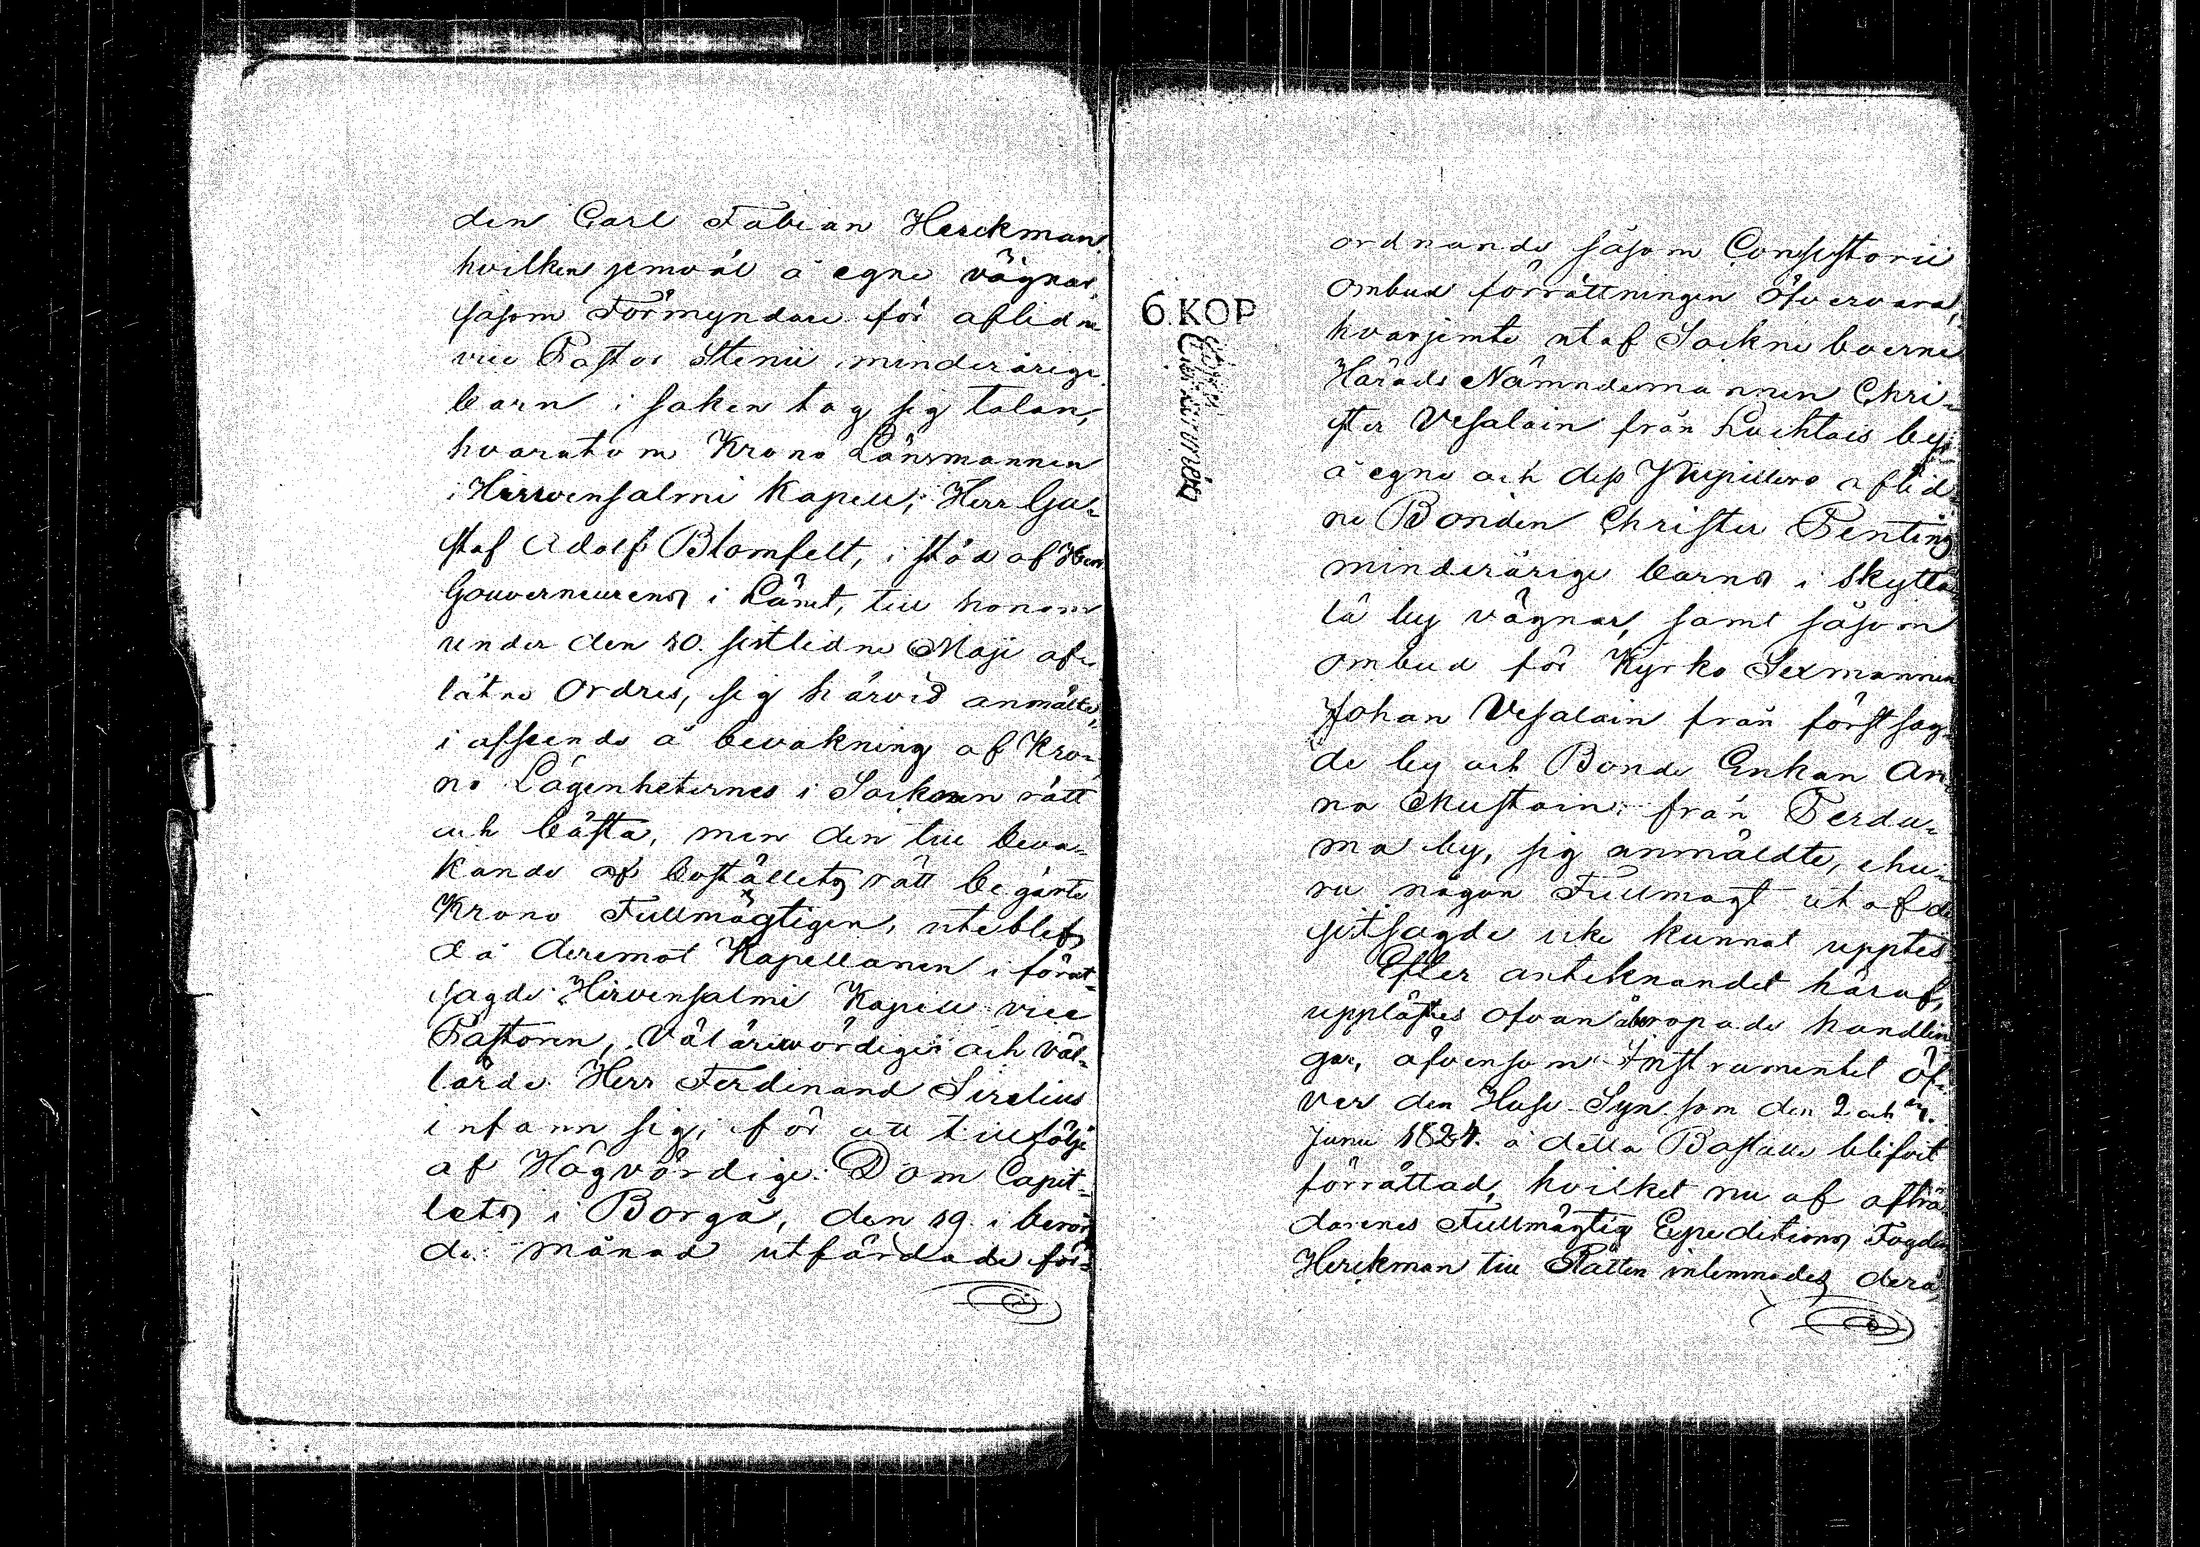 den Carl Fabian Herckman
hvilken jemväl å egne vägnar,
såsom Förmyndare för aflidne
vice Pastor Stenii minderårige
barn i saken tog sig talan,
hvarutom Krono Länsmannen
i Hirwensalmi Kapell, Herr Gu-
staf Adolf Blomfelt, i stöd af Herr
Gouverneurens i Länet, till honom
under den 10. sistlidne Maji af-
låtne Ordres, sig härvid anmälte,
i afseende å bevakning af Kro-
no Lägenheternes i Socknen rätt
och bästa, men den till beva-
kande af boställets rätt begärte
Krono Fullmägtigen, uteblef,
då deremot Kapellanen i först-
sagde Hirvensalmi Kapell vice
Pastoren, Välärewördige och Väl-
lärde Herr Ferdinand Sirelius
infann sig, för att till följe
af Högvördige Dom Capit-
lets i Borgå, den 19. i berör-
de månad utfärdade för-
6.KOP
ordnande såsom Consistorii
Ombud förrättningen öfvervara,
hvarjemte utaf Sockne boerne
Härads Nämndemannen Chri-
ster Vesalain från Luchtais by
å egne och dess Pupillers aflid-
ne Bonden Christer Penting
minderårige barns i Skyttä-
lä by vägnar, samt såsom
Ombud för Kyrko Sexmannen
Johan Vesalain från förstsag-
de by och Bonde Enkan An-
na Mustain från Perdu-
ma by, sig anmäldte, ehu-
ru någon Fullmagt utaf de
sistsagde icke kunnat upptes.
Efter anteknandet häraf,
upplästes ofvan åberopade handlin-
gar, äfvensom Instrumentet öf-
ver den Huse Syn som den 2 och 4.
Junii 1824. å detta Boställe blifvit
förrättad, hvilket nu af afträ-
darenes Fullmägtig Expeditions Fogden
Herckman till Rätten inlemnades, derå